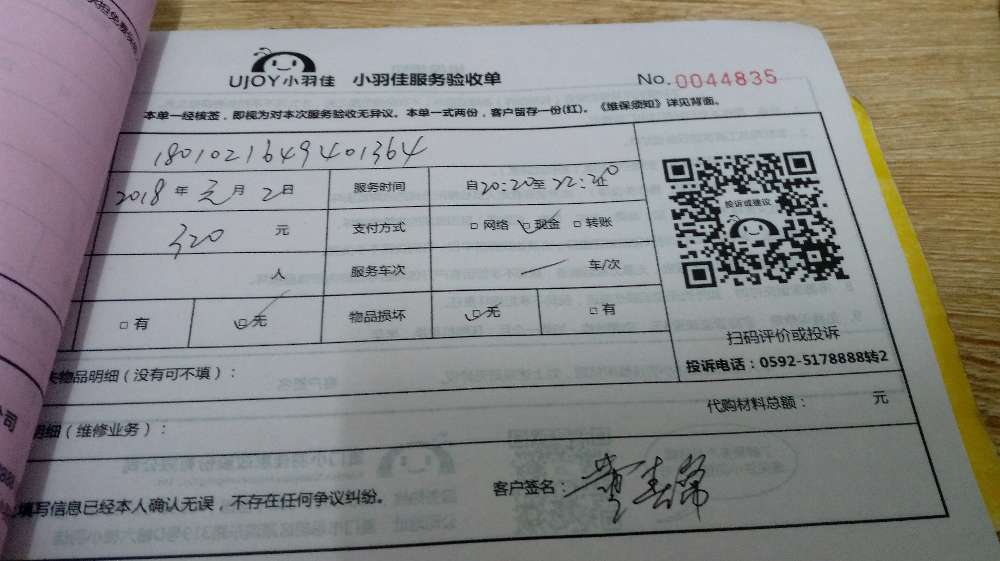 UJOY小羽佳 小羽佳服务验收单 No.0044835
本单一经核签，即视为对本次服务验收无异议。本单一式两份，客户留存一份(红)。《维保须知》详见背面。
1801021649401364
2018年元月2日 服务时间 自20:20至22:20
320 元 支付方式 □网络 □现金 □转账
人 服务车次 车/次
□有 □无 物品损坏 □无 □有
投诉或建议
扫码评价或投诉
投诉电话：0592-5178888转2
物品明细（没有可不填）：
明细（维修业务）： 代购材料总额： 元
填写信息已经本人确认无误，不存在任何争议纠纷。 客户签名：